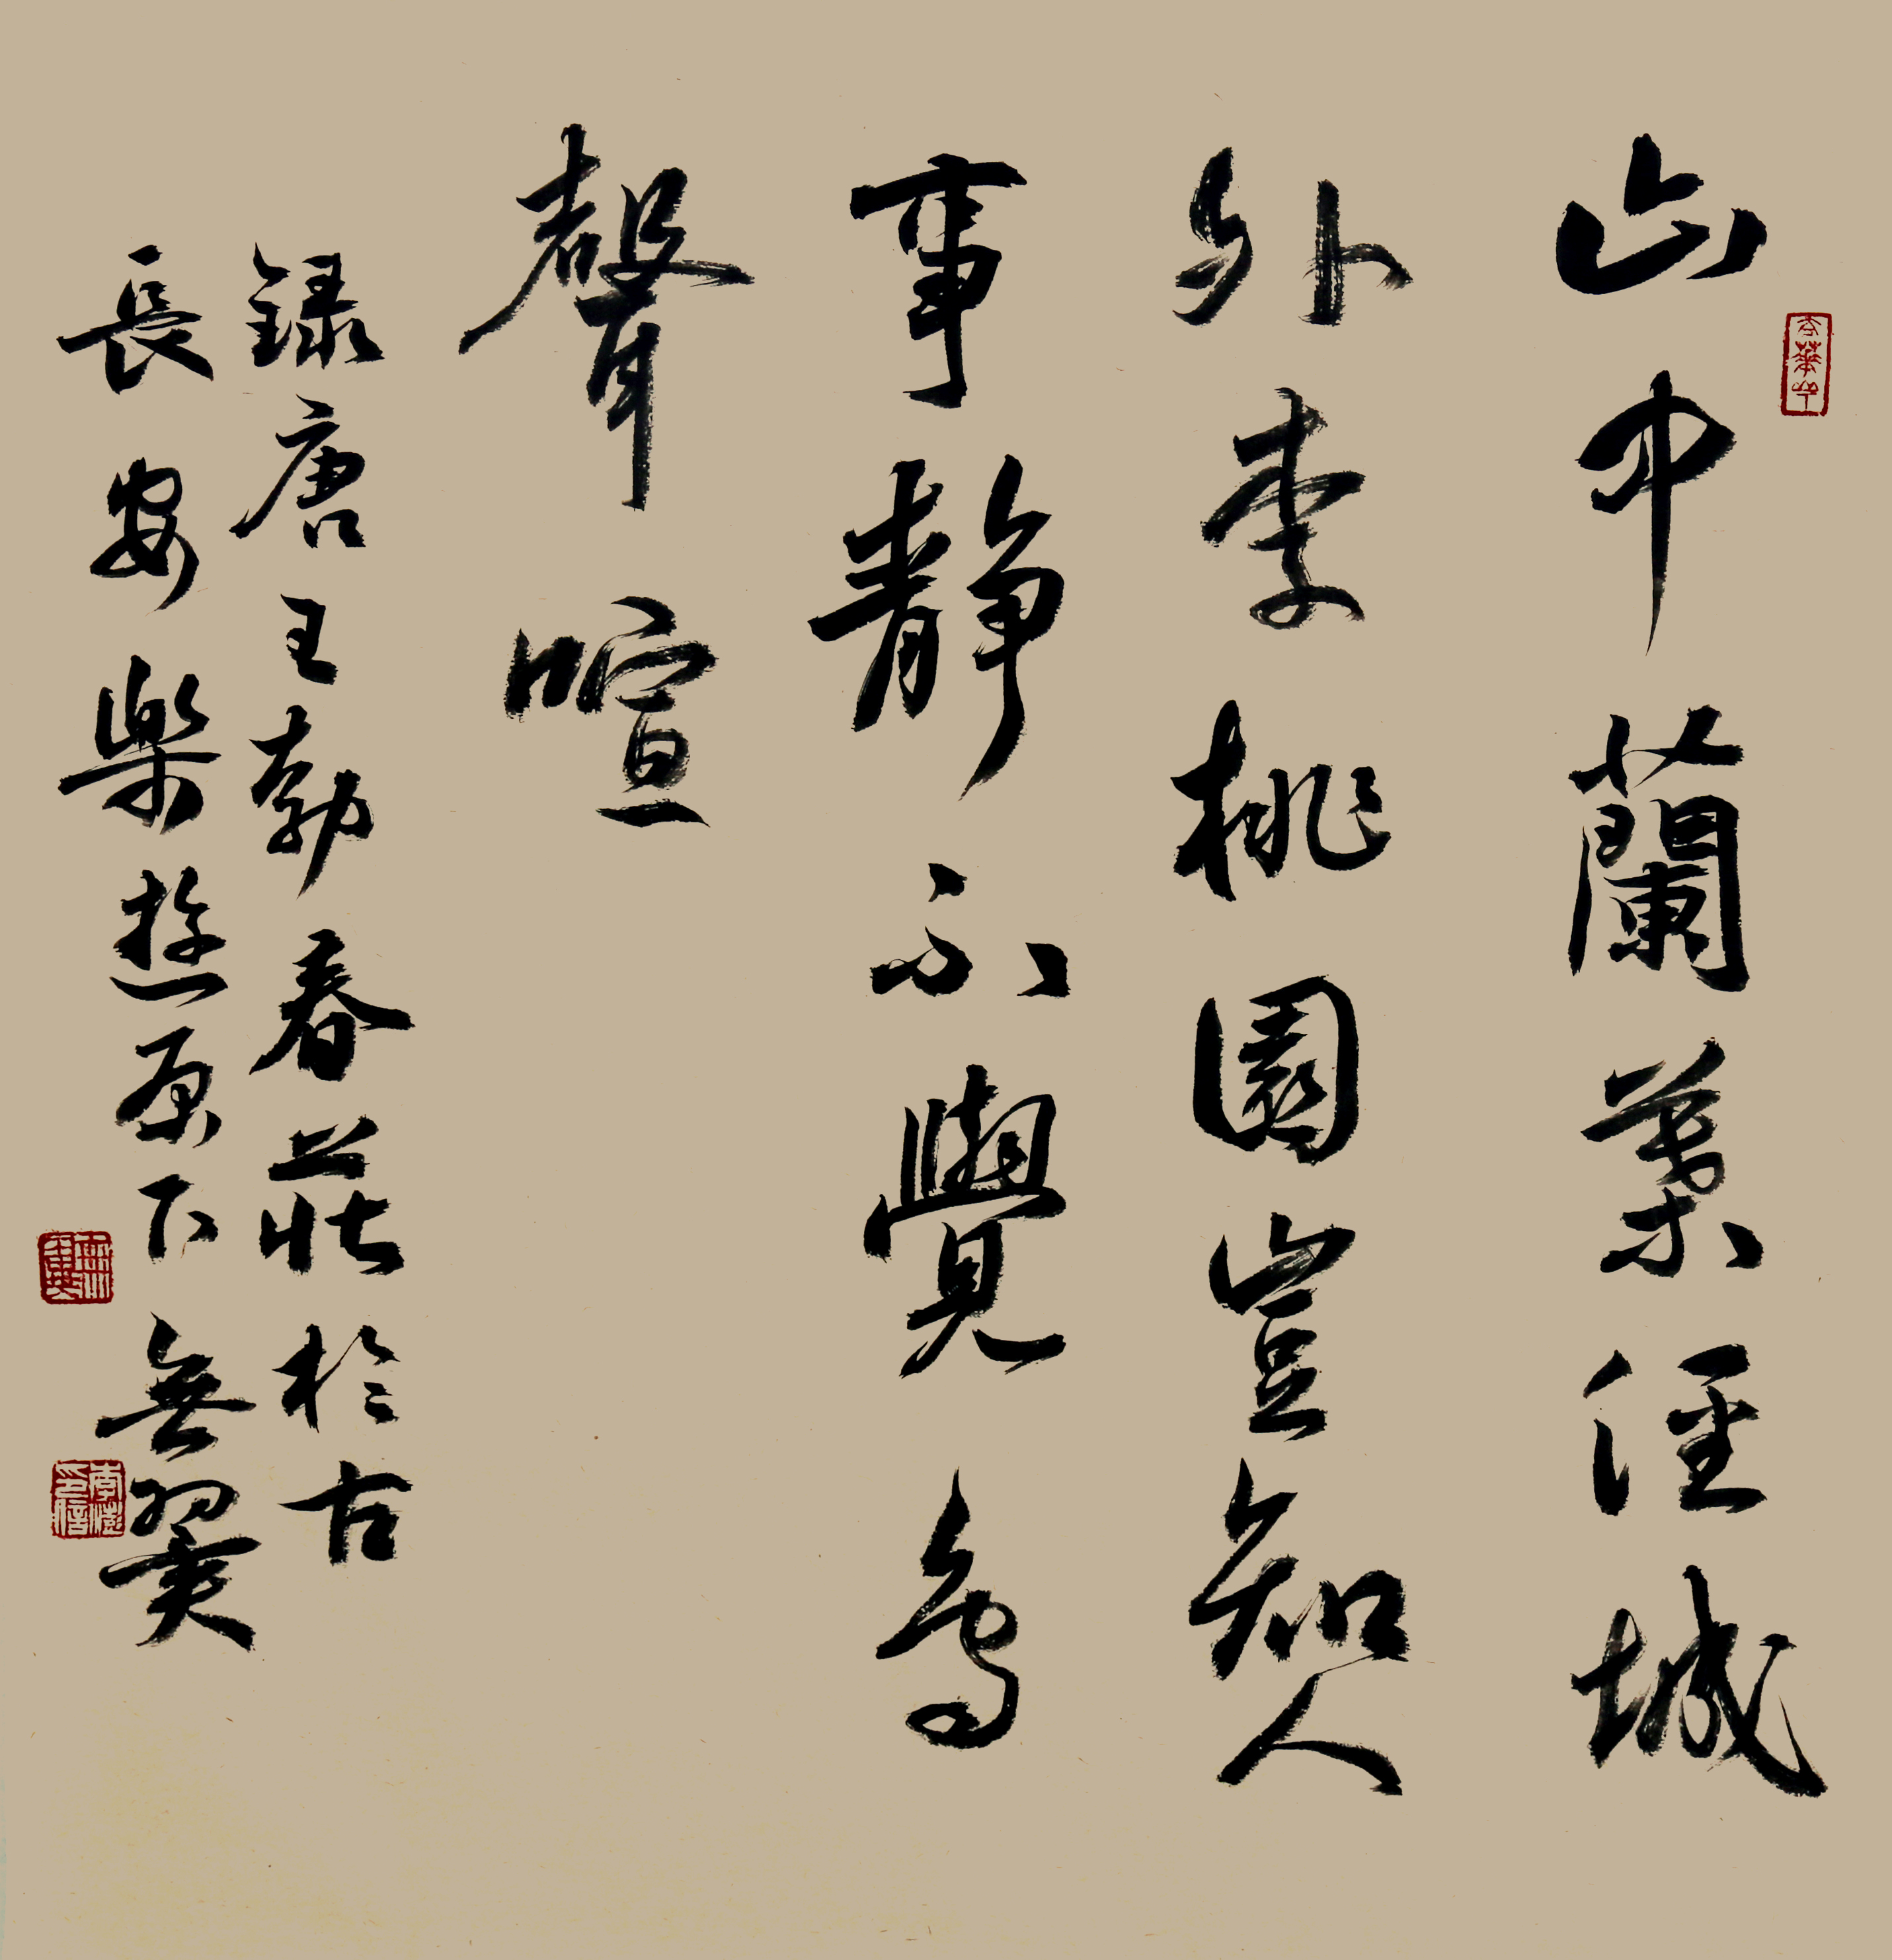 山中蘭葉径城
外李桃園豈知人
事靜不覺鳥
聲喧
録唐王勃春莊於古
長安樂遊原下無翼
無翼